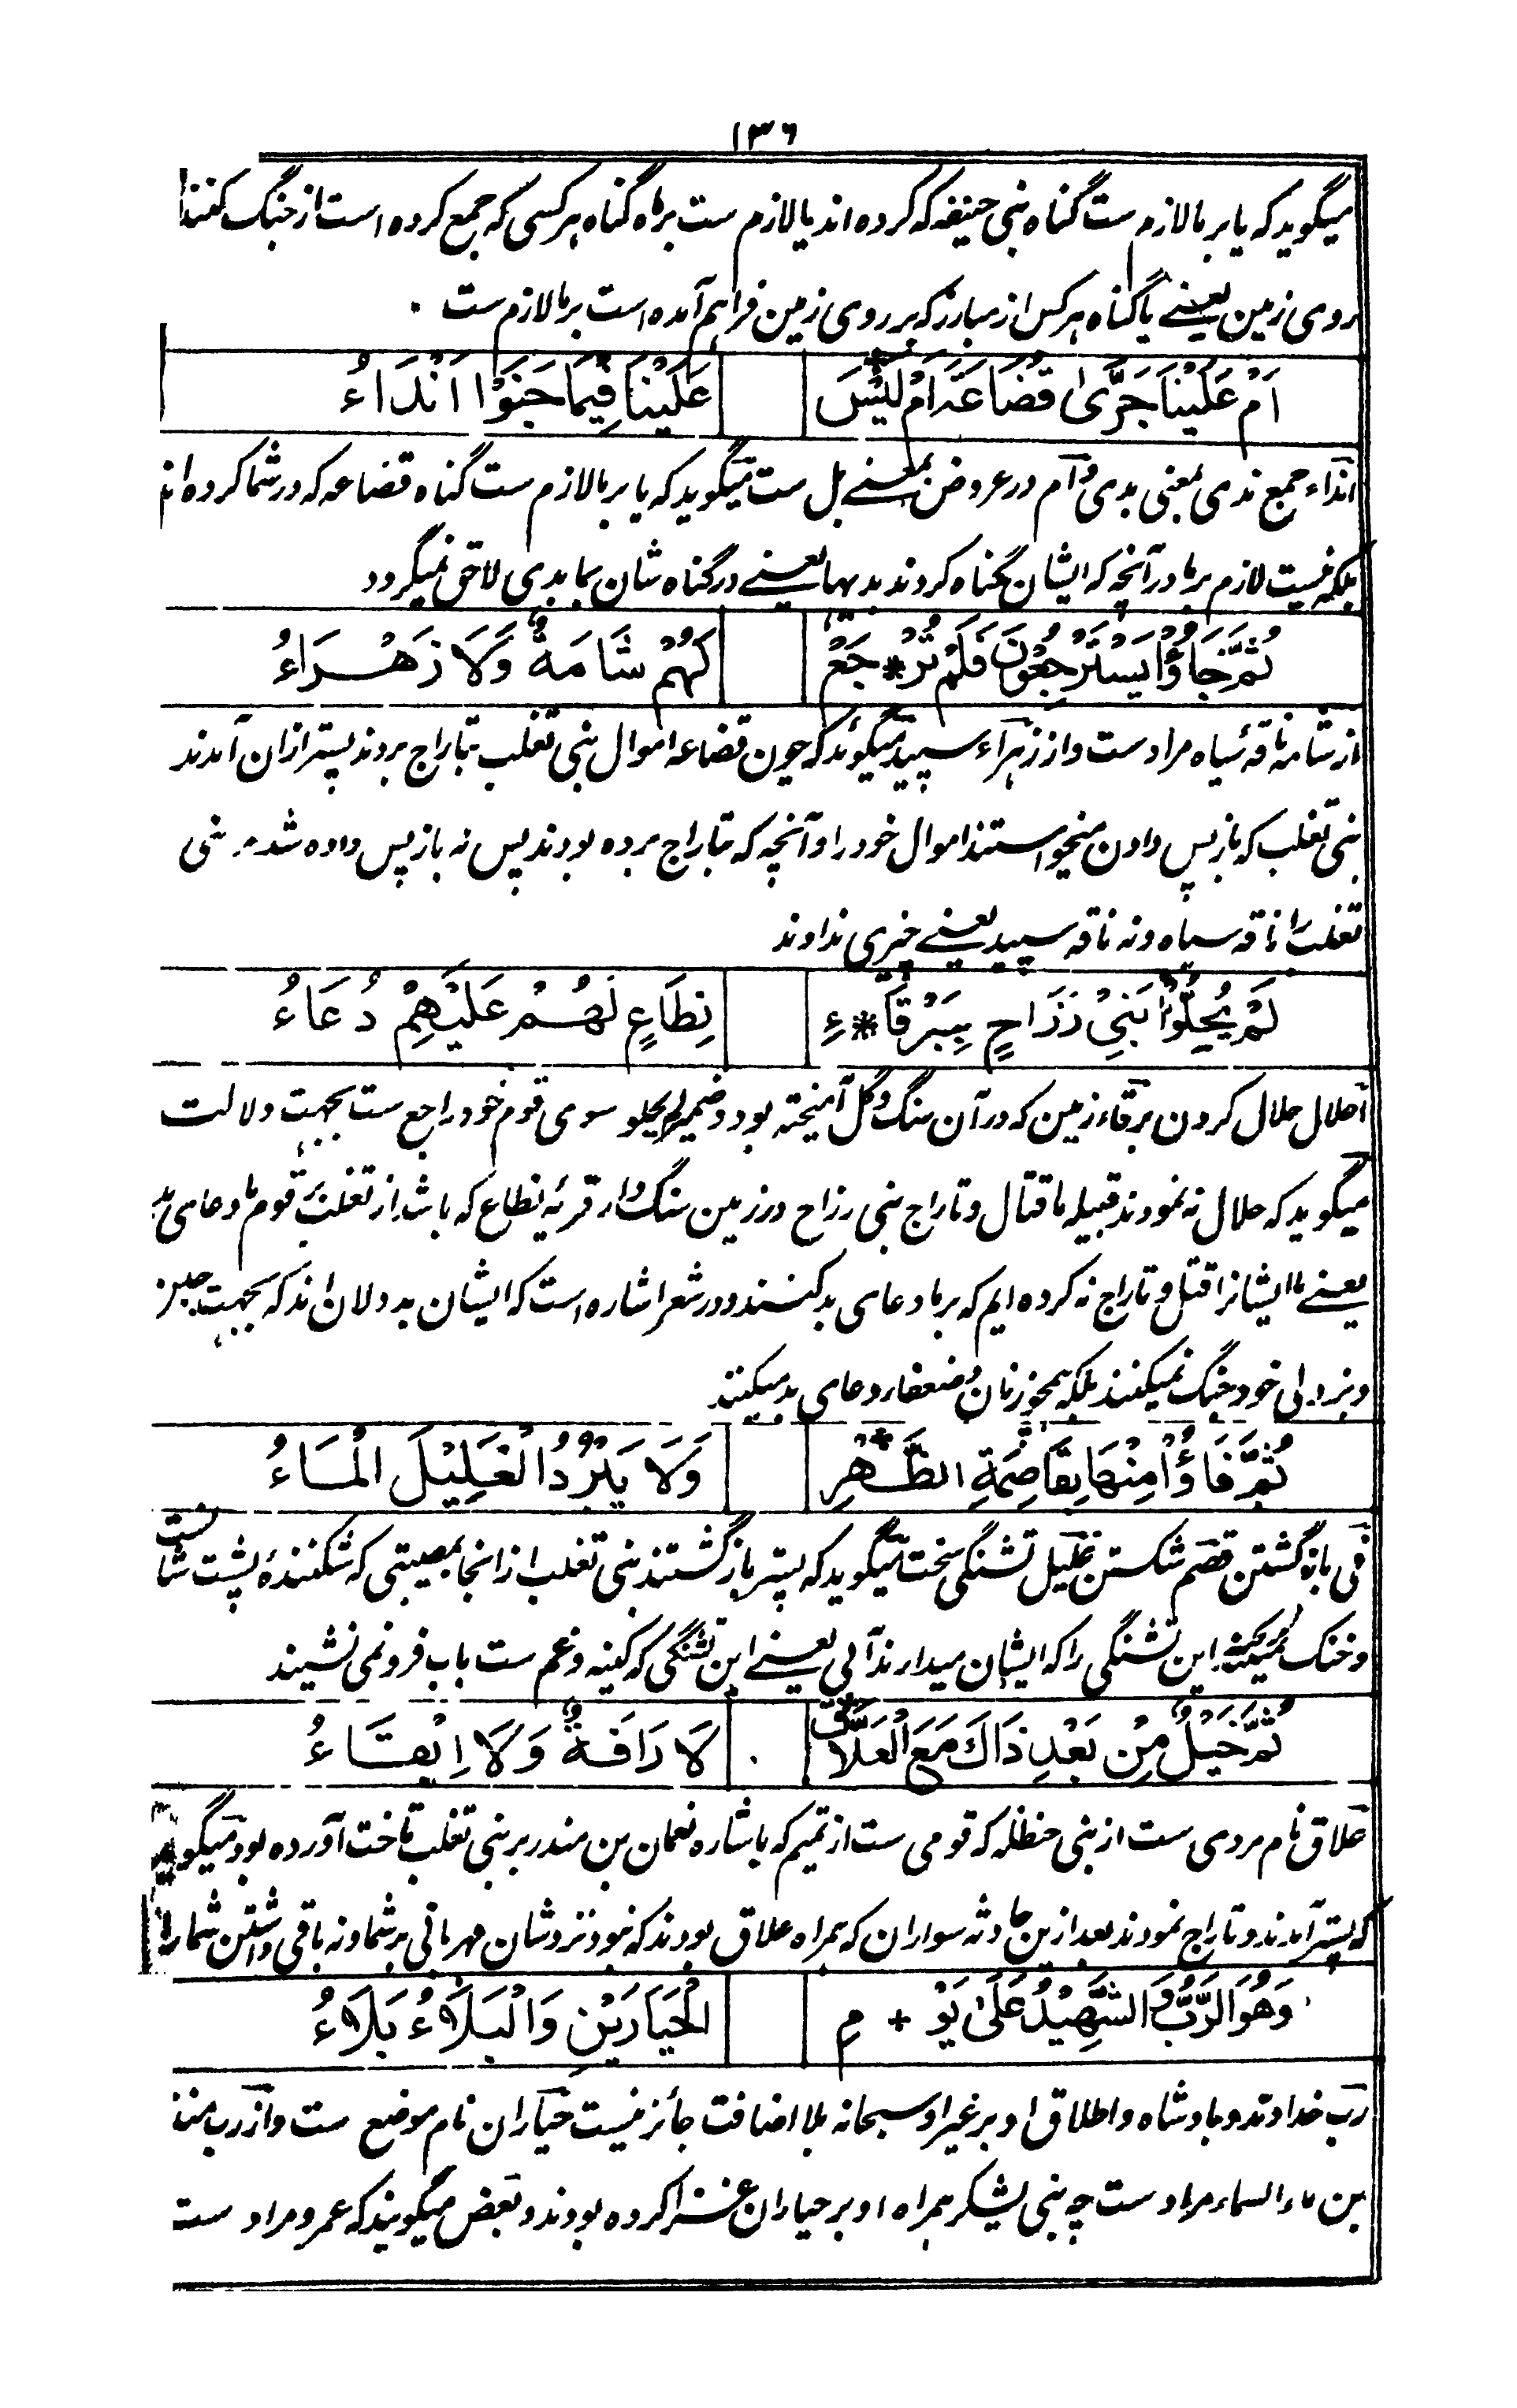 ١٣٦
میگوید که یا بر ما لازم ست گناه بنی حنیفه که کرده اند یا لازم ست بر ما گناه هر کسی که جمع کرده است از جنگ کنندا
روی زمین یعنے یا گناه هر کس از مبارز که بر روی زمین فراهم آمده است بر ما لازم ست
اَمْ عَلَيْنَا جَرَّىٰ قُضَاعَةَ اَمْ لَيْسَ عَلَيْنَا فِيْمَا جَنَوْا اَنْدَاءُ
انداء جمع ندی بمعنی بدی و اَم در عروض بمعنے بل ست میگوید که یا بر ما لازم ست گناه قضاعه که در شما کرده اند
بلکه نیست لازم بر ما در آنچه که ایشان گناه کردند بدیها یعنے در گناه شان بما بدی لاحق نمیگردد
ثُمَّ جَاؤُا يَسْتَرْجِعُوْنَ فَلَمْ تُرْ * جَعْ لَهُمْ شَامَةٌ وَّلَا زَهْرَاءُ
از شامه ناقهٔ سیاه مراد ست و از زهراء سپید میگوید که چون قضاعه اموال بنی تغلب بتاراج بردند پستر ازان آمدند
بنی تغلب که باز پس دادن میخواستند اموال خود را و آنچه که بتاراج برده بودند پس نه باز پس داده شد بنی
تغلب را ناقه سیاه و نه ناقه سپید یعنے چیزی ندادند
لَمْ يُحِلُّوْا بَنِيْ رَزَاحٍ بِبَرْقَا * ءِ نِطَاعٍ لَهُمْ عَلَيْهِمْ دُعَاءُ
احلال حلال کردن برقاء زمین که در آن سنگ و گل آمیخته بود و ضمیر لم یحلو سوی قوم خود راجع ست بجهت دلالت
میگوید که حلال نه نمودند قبیله ما قتال و تاراج بنی رزاح در زمین سنگ دار قریهٔ نطاع که باشد از تغلب بر قوم ما دعای بد
یعنے ما ایشانرا قتل و تاراج نه کرده ایم که بر ما دعای بد کنند و در شعر اشاره است که ایشان بددلان اند که بجهت جبن
و بزدلی خود جنگ نمیکنند بلکه همچو زنان و ضعفا دعای بد میکنند
ثُمَّ فَاؤُا مِنْهَا بِقَاصِمَةِ الظَّهْرِ وَلَا يَبْرُدُ الْغَلِيْلَ الْمَاءُ
فی باز گشتن قصم شکستن غلیل تشنگی سخت میگوید که پستر باز گشتند بنی تغلب از انجا بمصیبتی که شکنندهٔ پشت شانست
و خنک نمیکند این تشنگی را که ایشان میدارند آبی یعنے این تشنگی که کینه و غم ست باب فرو نمی نشیند
ثُمَّ خَيْلٌ مِنْ بَعْدِ ذَاكَ مَعَ الْعَلَّاقِ لَا رَافَةٌ وَلَا اِبْقَاءُ
علاق نام مردی ست از بنی حنظله که قومی ست از تمیم که باشاره نعمان بن منذر بر بنی تغلب تاخت آورده بود میگوید
که پستر آمدند و تاراج نمودند بعد ازین حادثه سواران که همراه علاق بودند که نبود نزد شان مهربانی بر شما و نه باقی داشتن شما را
وَهُوَ الرَّبُّ وَالشَّهِيْدُ عَلَىٰ يَوْ + مِ الْحِيَارَيْنِ وَالْبَلَاءُ بَلَاءُ
رب خداوند و بادشاه و اطلاق او بر غیر او سبحانه بلا اضافت جائز نیست حیاران نام موضع ست و از رب منذر
بن ماء السماء مراد ست چه بنی یشکر همراه او بر حیاران غزا کرده بودند و بعض میگویند که عمرو مراد ست